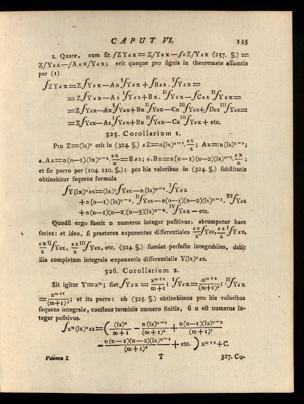 CAPUT VI. 145
2. Quare, cum sit ∫ZYεx = Z∫Yεx − ∫εZ∫Yεx (257. §.) =
Z∫Yεx − ∫Aεx∫Yεx; erit quoque pro signis in theoremate assumtis
per (1)
∫ZYεx = Z∫Yεx − Ax ᴵ∫Yεx + ∫Bεx. ᴵ∫Yεx =
= Z∫Yεx − Ax ᴵ∫Yεx + Bx. ᴵᴵ∫Yεx − ∫Cεx ᴵᴵ∫Yεx =
= Z∫Yεx − Ax ᴵ∫Yεx + Bx ᴵᴵ∫Yεx − Cx ᴵᴵᴵ∫Yεx + ∫Dεx ᴵᴵᴵ∫Yεx =
= Z∫Yεx − Ax ᴵ∫Yεx + Bx ᴵᴵ∫Yεx − Cx ᴵᴵᴵ∫Yεx + etc.
325. Corollarium 1.
Pro Z = (lx)ⁿ erit in (324. §.) εZ = n(lx)ⁿ⁻¹. εx/x; Ax = n(lx)ⁿ⁻¹;
ε.Ax = n(n−1)(lx)ⁿ⁻². εx/x = Bεx; ε.Bx = n(n−1)(n−2)(lx)ⁿ⁻³. εx/x;
et sic porro per (104. 110. §.): pro his valoribus in (324. §.) substitutis
obtinebitur sequens formula
∫Y(lx)ⁿεx = (lx)ⁿ∫Yεx − n(lx)ⁿ⁻¹. ᴵ∫Yεx
+ n(n−1)(lx)ⁿ⁻². ᴵᴵ∫Yεx − n(n−1)(n−2)(lx)ⁿ⁻³. ᴵᴵᴵ∫Yεx
+ n(n−1)(n−2)(n−3)(lx)ⁿ⁻⁴. ᴵⱽ∫Yεx − etc.
Quodsi ergo fuerit n numerus integer positivus, abrumpetur haec
series: et ideo, si praeterea exponentes differentiales εx/x ∫Yεx, εx/x ᴵ∫Yεx,
εx/x ᴵᴵ∫Yεx, εx/x ᴵᴵᴵ∫Yεx, etc. (324. §.) fuerint perfecte integrabiles, dabit
illa completum integrale exponentis differentialis Y(lx)ⁿεx.
326. Corollarium 2.
Sit igitur Y = xᵐ; fiet ∫Yεx = xᵐ⁺¹/(m+1) ᴵ∫Yεx = xᵐ⁺¹/(m+1)²; ᴵᴵ∫Yεx
= xᵐ⁺¹/(m+1)³; et ita porro: ob (325. §.) obtinebimus pro his valoribus
sequens integrale, constans terminis numero finitis, si n est numerus in-
teger positivus.
∫xᵐ(lx)ⁿεx = ((lx)ⁿ/(m+1) − n(lx)ⁿ⁻¹/(m+1)² + n(n−1)(lx)ⁿ⁻²/(m+1)³
− n(n−1)(n−2)(lx)ⁿ⁻³/(m+1)⁴ + etc.) xᵐ⁺¹ + C.
Volumen I. T 327. Co-